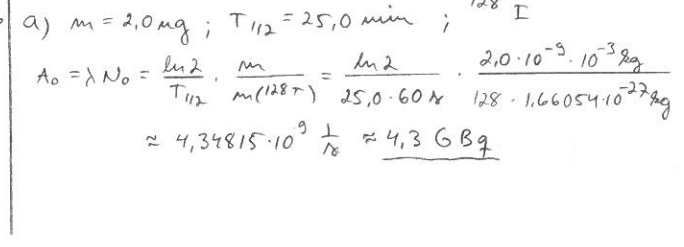 a) m = 2,0 ng ; T1/2 = 25,0 min ; 128 I
A0 = λ N0 = ln 2 / T1/2 · m / m(128 I) = ln 2 / 25,0 · 60 s · 2,0 · 10^-9 · 10^-3 kg / 128 · 1,66054 · 10^-27 kg
≈ 4,34815 · 10^9 1/s ≈ 4,3 GBq